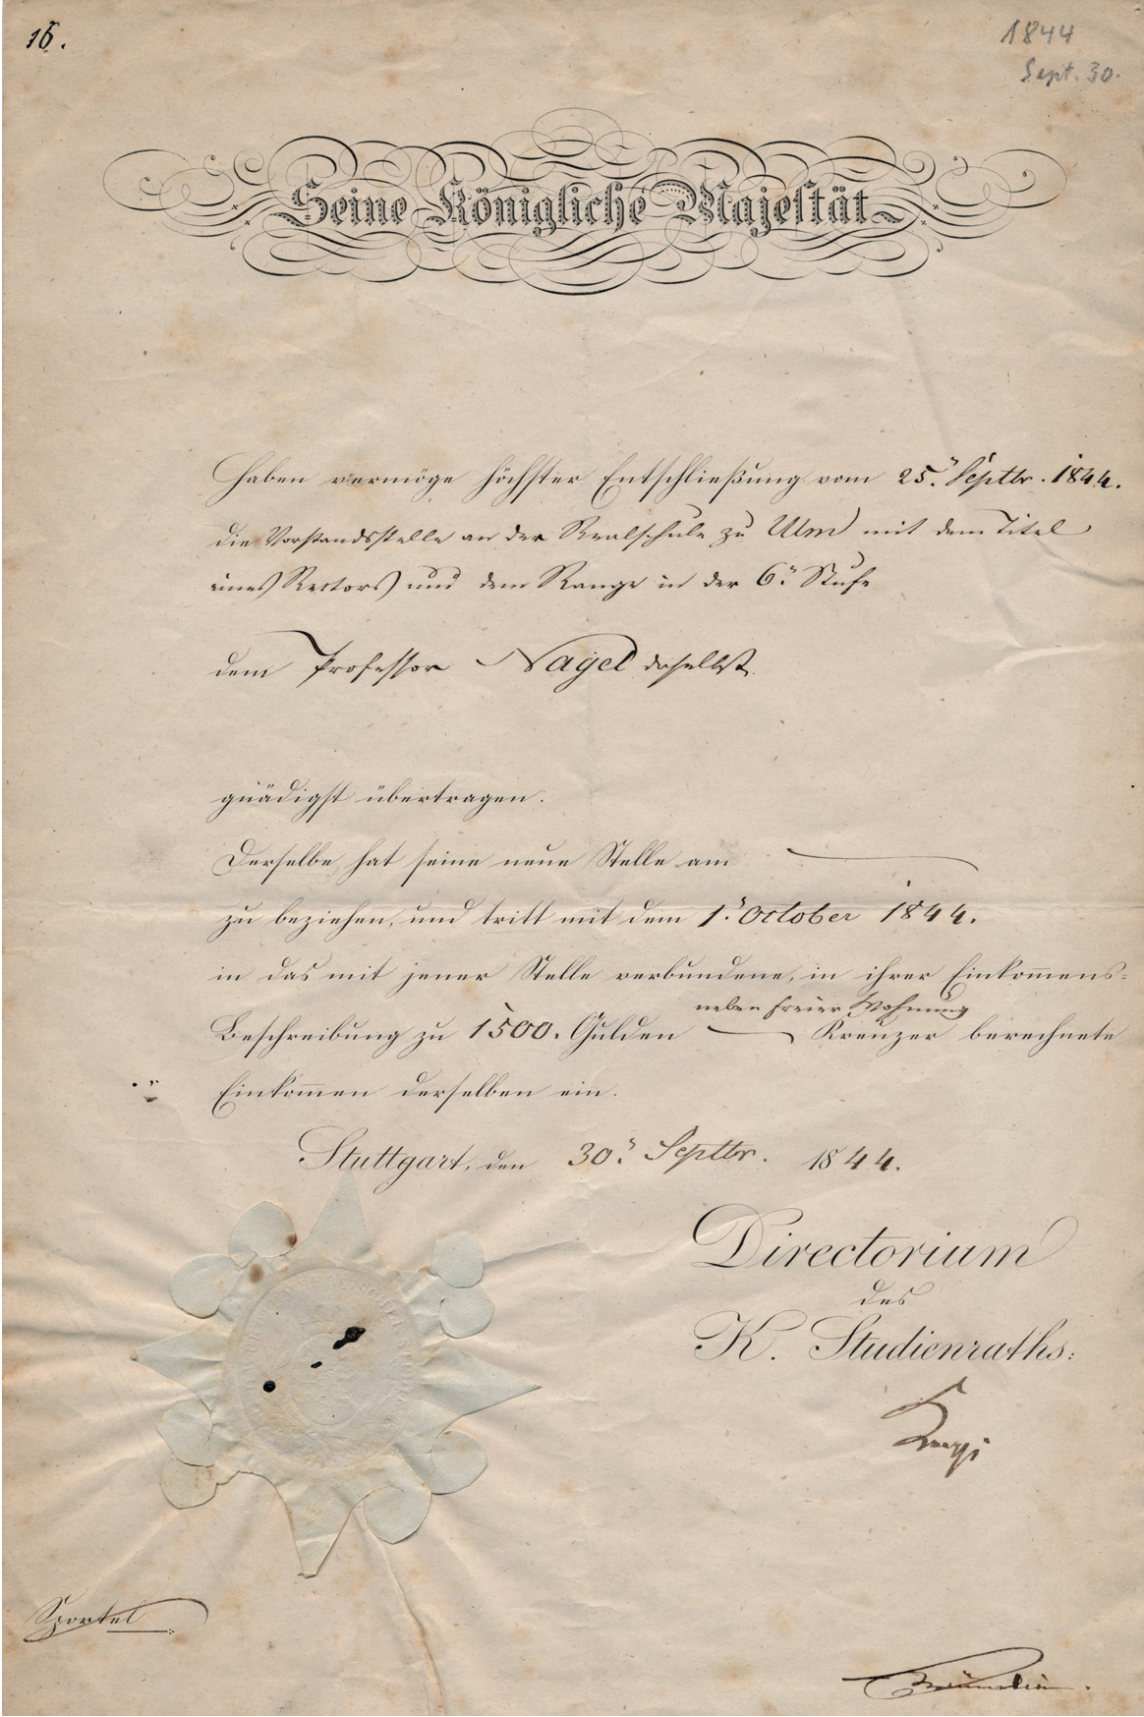 16.
1844
Sept. 30.
Seine Königliche Majestät
Haben vermöge höchster Entschließung vom 25. Septbr. 1844.
die Vorstandsstelle an der Realschule zu Ulm mit dem Titel
eines Rectors und dem Range in der 6. Stufe
dem Professor Nagel daselbst
gnädigst übertragen.
Derselbe hat seine neue Stelle am
zu beziehen, und tritt mit dem 1. October 1844.
in das mit jener Stelle verbundene, in ihrer Einkom̄ens-
neben freier Wohnung
Beschreibung zu 1500. Gulden — Kreuzer berechnete
Einkom̄en derselben ein.
Stuttgart, den 30. Septbr. 1844.
Directorium
des
K. Studienraths:
Sportel